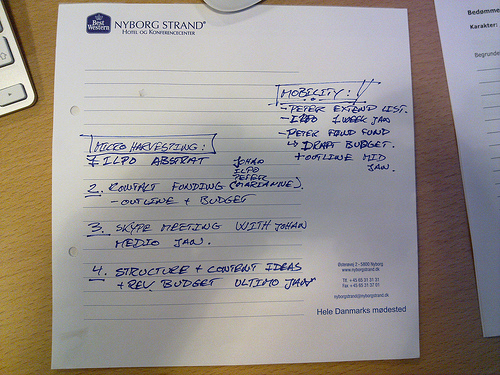 Best
Western
NYBORG STRAND
HOTEL OG KONFERENCECENTER
MOBILITY:
- PETER EXTEND LIST.
- ILPO 1 WEEK JAN
- PETER FIND FUND
↳ DRAFT BUDGET.
+ OUTLINE MID
JAN.
MICRO HARVESTING:
1 ILPO ABSTRAT
JOHAN
ILPO
PETER
2. KONTAKT FUNDING (MARIANNE).
- OUTLINE + BUDGET
3. SKYPE MEETING WITH JOHAN
MEDIO JAN.
4. STRUCTURE + CONTENT IDEAS
+ REV. BUDGET ULTIMO JAN
Østerøvej 2 - 5800 Nyborg
www.nyborgstrand.dk
Tlf. +45 65 31 31 31
Fax +45 65 31 37 01
nyborgstrand@nyborgstrand.dk
Hele Danmarks mødested
Bedømme
Karakter:
Begrunde